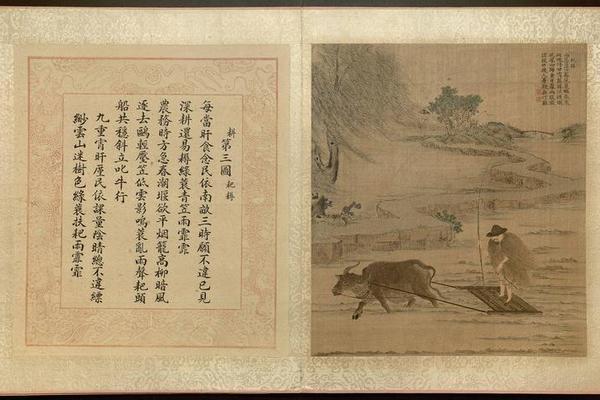 耕第三圖 耙耨
每當旰食念民依南畝三時願不違已見
深耕還易耨綠蓑青笠雨霏霏
農務時方急春潮堰欲平烟籠高柳暗風
逐去鷗輕壓笠低雲影鳴蓑亂雨聲耙頭
船共穩斜立叱牛行
九重宵旰廑民依課量陰晴總不違縹
緲雲山迷樹色綠蓑扶耙雨霏霏